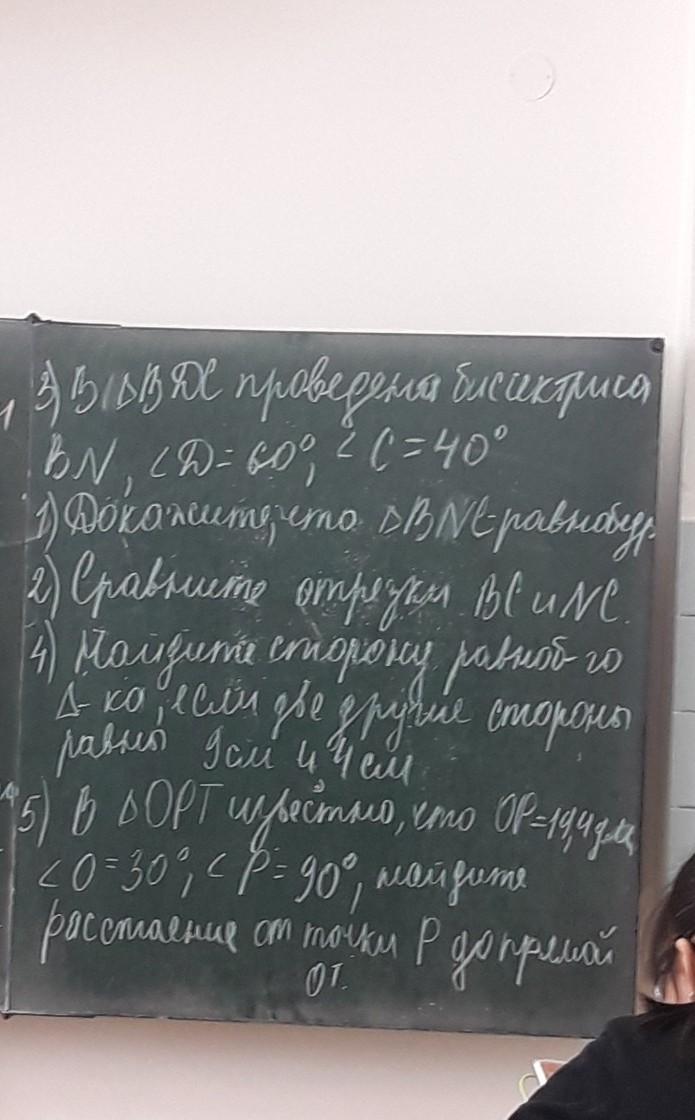 3) В ΔВДС проведена биссектриса
BN, ∠Д=60°, ∠C=40°
1) Докажите, что ΔBNC-равнобедр
2) Сравните отрезки BC и NC.
4) Найдите сторону равноб-го
Δ-ка, если две другие стороны
равны 9см и 4см
5) В ΔОРТ известно, что ОР=19,4дм,
∠О=30°, ∠Р=90°, найдите
расстояние от точки Р до прямой
ОТ.